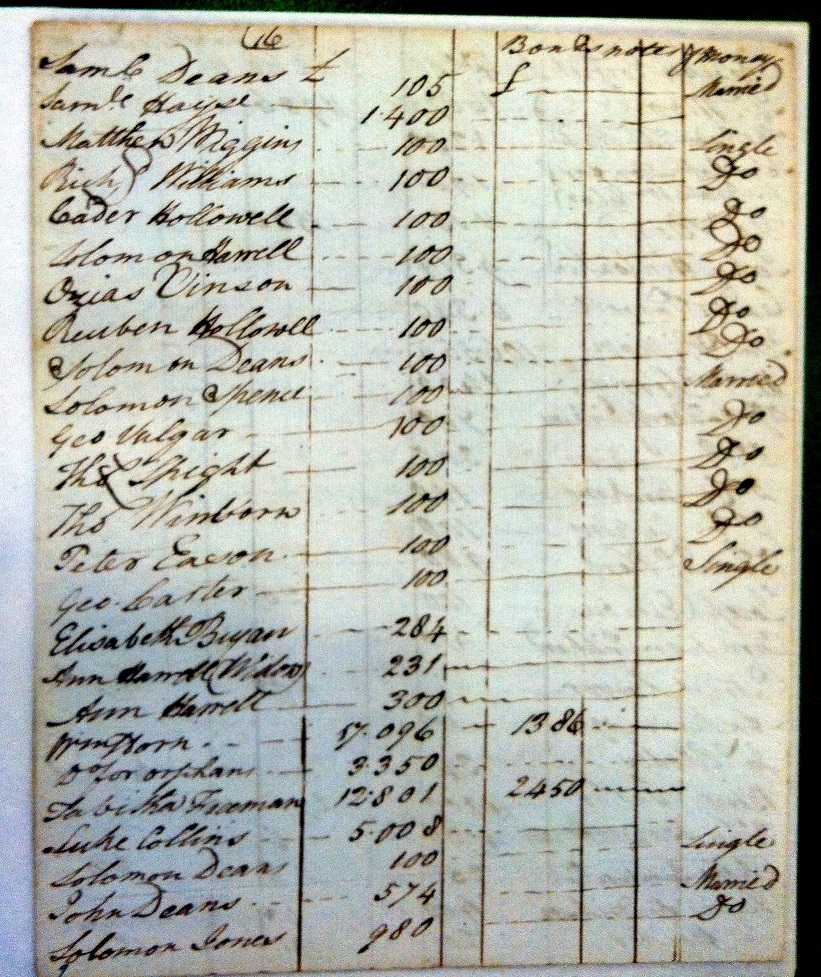 (16
Bonds notes & money
Saml Deans £ 105 £ Married
Saml Hayse 1.400
Matthew Wiggins 100 Single
Richd Williams 100 Do
Cader Hollowell 100 Do
Solomon Harrell 100 Do
Ozias Vinson 100 Do
Reuben Hollowell 100 Do
Solomon Deans 100 Do
Solomon Spence 100 Married
Geo Vulgar 100 Do
Thos Spight 100 Do
Thos Winborn 100 Do
Peter Eason 100 Do
Geo Carter 100 Single
Elisabeth Bryan 284
Ann Harrell (Widow) 231
Ann Harrell 300
Wm Horn 17.096 1386
Do for orphans 3.350
Tabitha Freeman 12.801 2450
Luke Collins 5.008
Solomon Deans 100 Single
John Deans 574 Married
Solomon Jones 980 Do